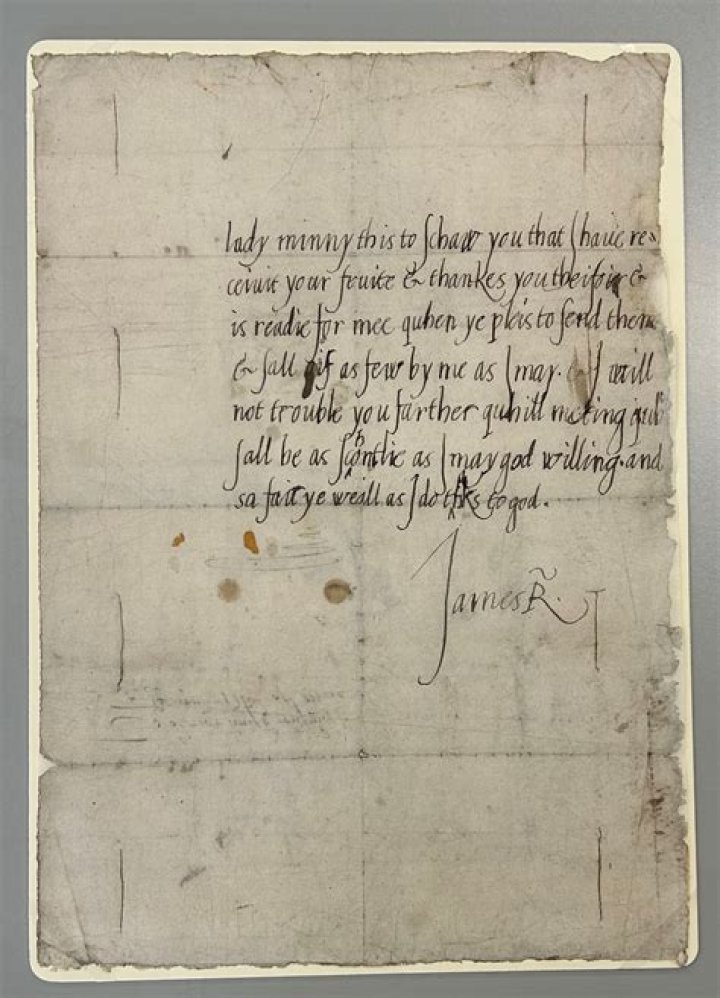 lady minny this to schaw you that I haue re-
ceiuit your fruite & thankes you theifoir &
is readie for mee quhen ye pleis to send them
& sall gif as few by me as I may. & I will
not trouble you farther quhill meting quh
sall be as schortlie as I may god willing. and
sa fair ye weill as I do to god.
James R.